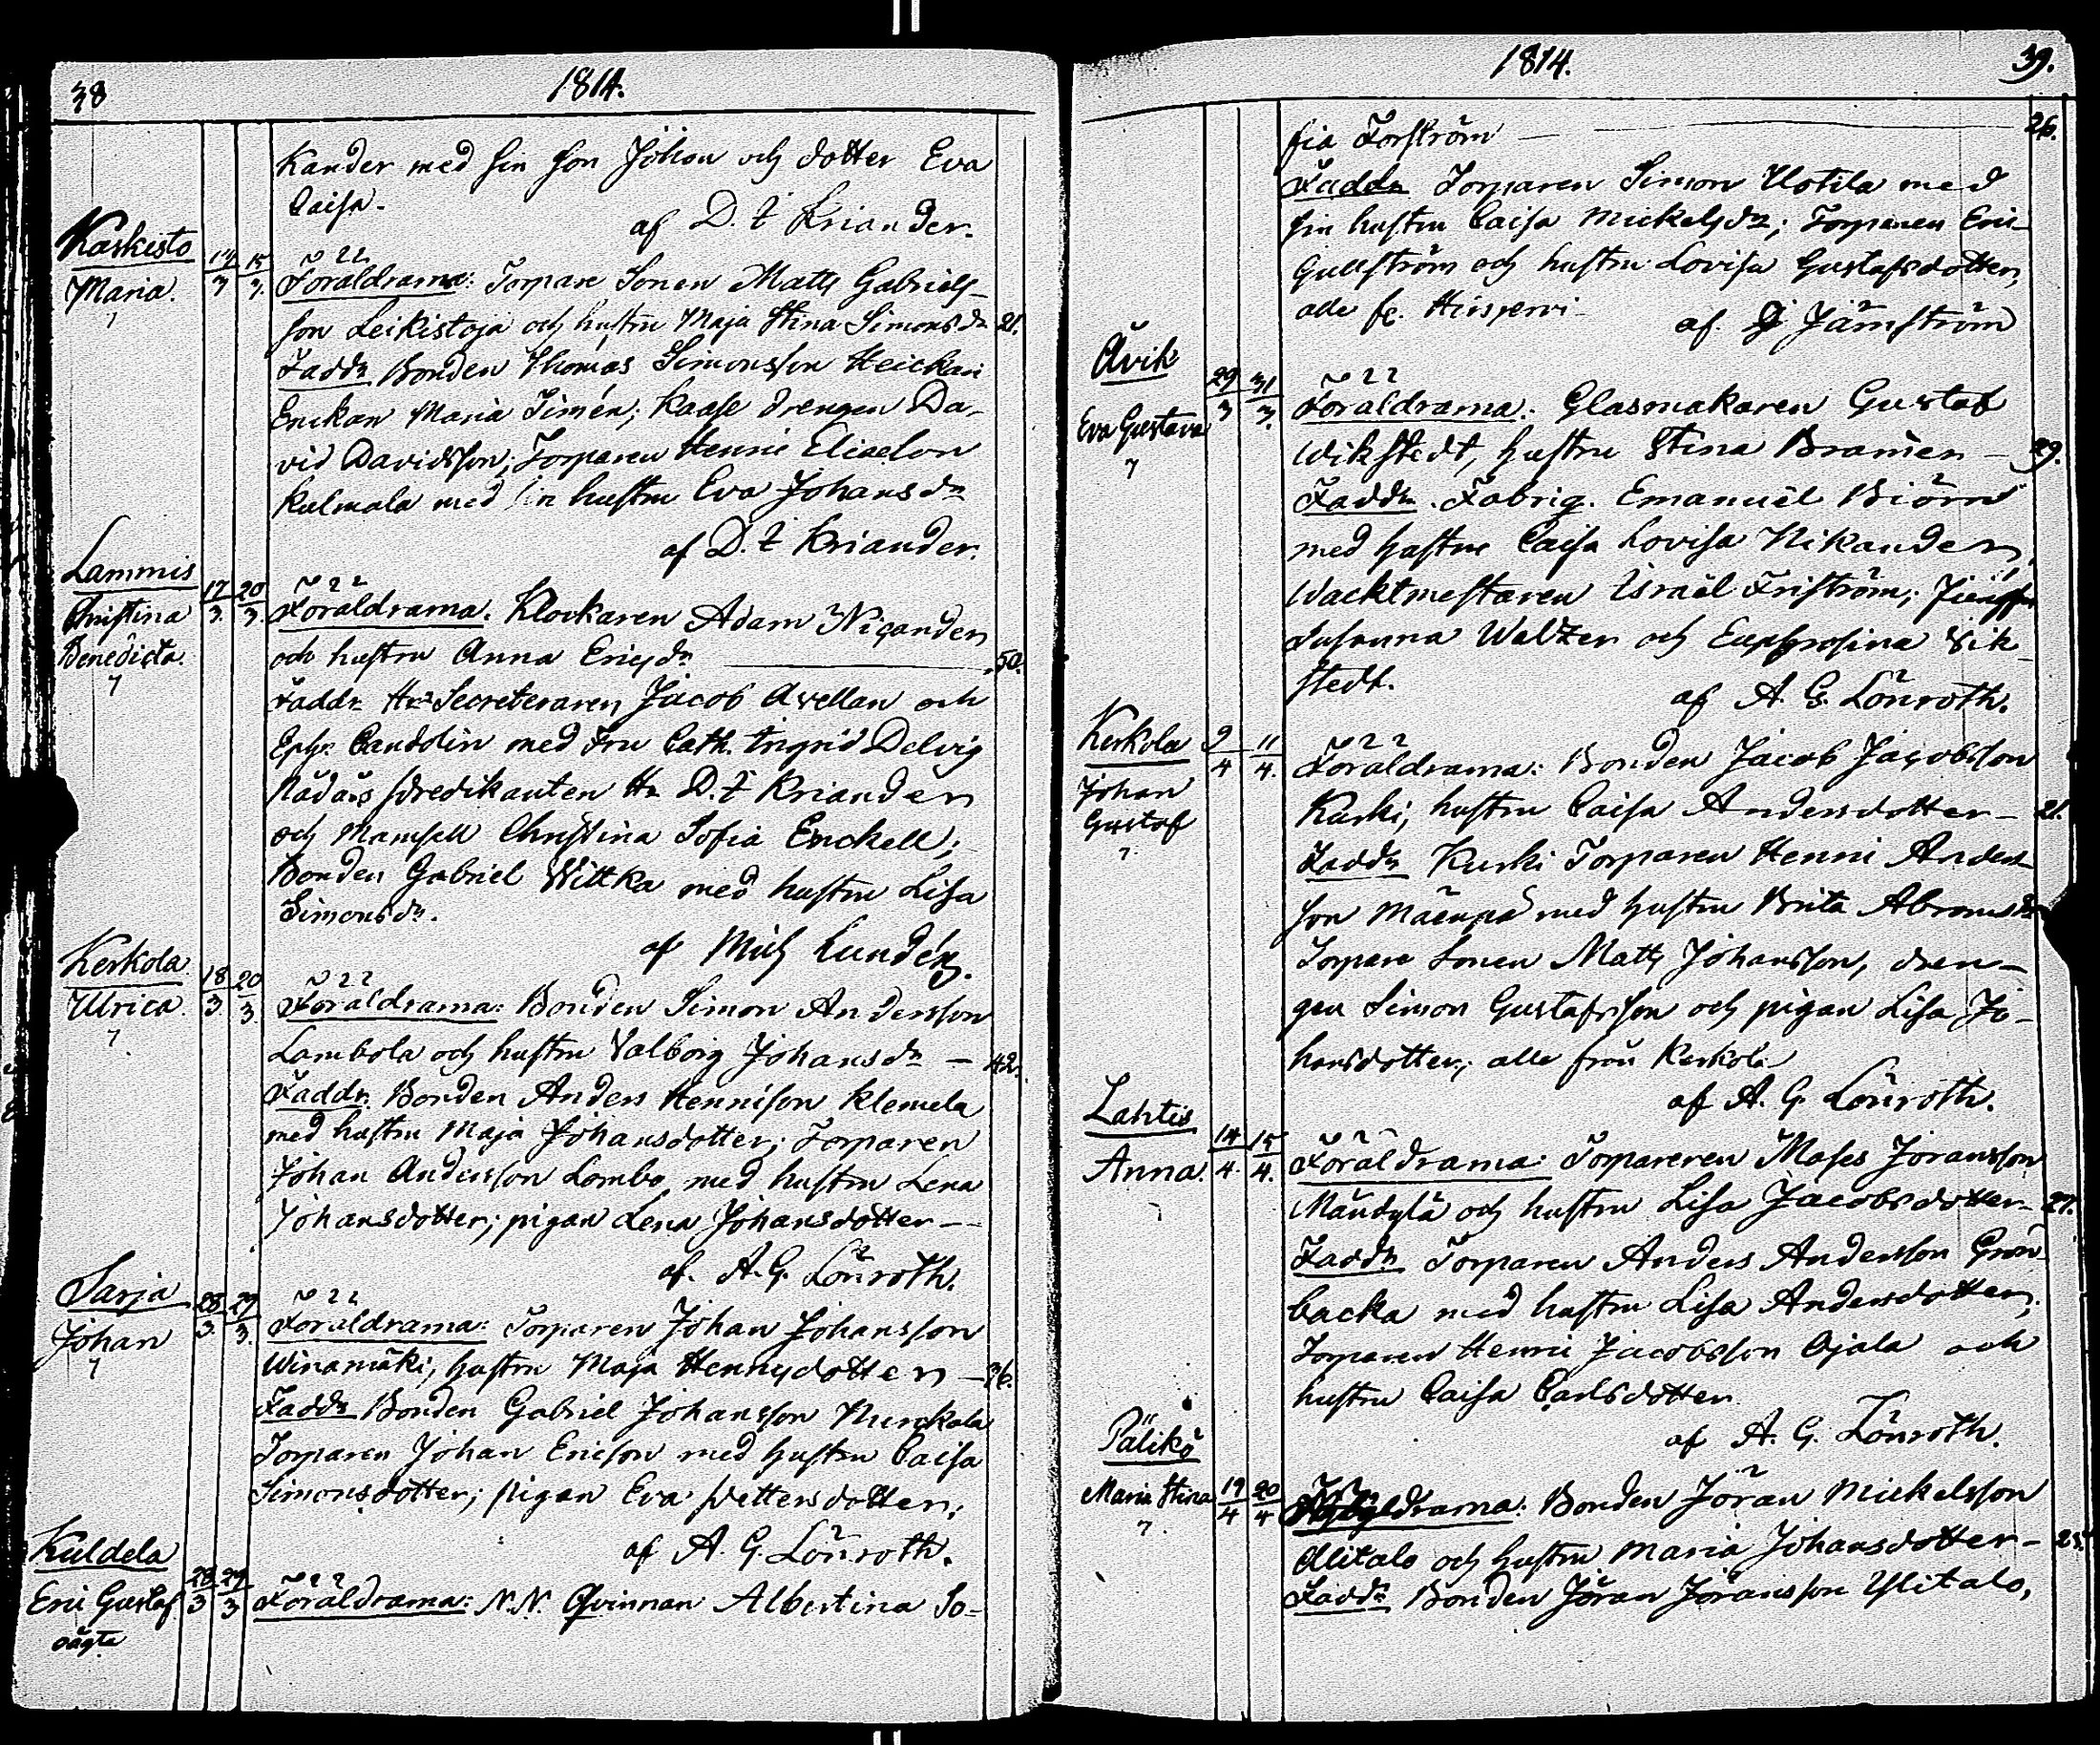 38
1814.
Kander med sin son Johan och dotter Eva
Caisa.
af D. F Kriander.
Karkisto
Maria.
14/3 15/3.
Föräldrarna: Torpare Sonen Matts Gabriels-
son Leikistoja och hustru Maja Stina Simonsdr 21.
Faddr Bonden Thomas Simonsson Heickari
Enckan Maria Simén; drengen Da-
vid Davidsson; Torparen Henric Eliaeson
Kulmala med sin hustru Eva Johansdr
af D. F Kriander.
Lammis
Christina
Benedicta.
17/3. 20/3.
Föräldrarna. Klockaren Adam Nicander
och hustru Anna Ericsdr 50.
Faddr Hr Secreteraren Jacob Avellan och
Candolin med Fru Cath. Ingrid Delvig
Nådårs predikanten Hr D. F Kriander
och Mamsell Christina Sofia Enckell;
Bonden Gabriel Wittka med hustru Lisa
Simonsdr.
af Mich Lundén.
Kerkola.
Ulrica.
18/3. 20/3.
Föräldrarna: Bonden Simon Andersson
Lambola och hustru Valborg Johansdr — 42.
Faddr. Bonden Anders Hennison Klemela
med hustru Maja Johansdotter; Torparen
Johan Andersson Lambo med hustru Lena
Johansdotter; pigan Lena Johansdotter —
af. A. G. Lönroth.
Sarja
Johan
28/3. 29/3.
Föräldrarna: Torparen Johan Johansson
Winamäki; hustru Maja Henricsdotter — 36.
Faddr Bonden Gabriel Johansson Nurckala
Torparen Johan Ericson med hustru Caisa
Simonsdotter; pigan Eva Pettersdotter;
af A. G. Lönroth.
Kuldela
Eric Gustaf
oägta
28/3 29/3
Föräldrarna: N.N. Qvinnan Albertina So-
1814.
39.
fia Forström — 26.
Faddr Torparen Simon Uotila med
sin hustru Caisa Mickelsdr; Torparen Eric
Gullström och hustru Lovisa Gustafsdotter,
alla fr. Hirsjervi.
af. G Järnström
Åvik
Eva Gustava
29/3 31/3.
Föräldrarna: Glasmakaren Gustaf
Wikstedt, hustru Stina Bramèn — 29.
Faddr. Fabriq. Emanuël Biörn
med hustru Caisa Lovisa Nikander,
Wacktmestaren Israël Friström;
Susanna Waltzer och Euphrosina Wik-
stedt.
af A. G. Lönroth.
Kerkola
Johan
Gustaf
9/4 11/4.
Föräldrarna: Bonden Jacob Jacobsson
Kurki; hustru Caisa Andersdotter — 21.
Faddr Kurki Torparen Henric Anders-
son Mäenpä med hustru Brita Abramsdr
Torpare Sonen Matts Johansson, dren-
gen Simon Gustafsson och pigan Lisa Jo-
hansdotter; alla från Kerkola
af A. G. Lönroth.
Lahtis
Anna.
14/4. 15/4.
Föräldrarna: Torpareren Moses Jöransson
Mändylä och hustru Lisa Jacobsdotter — 27.
Faddr Torparen Anders Andersson Grön-
backa med hustru Lisa Andersdotter,
Torparen Henric Jacobsson Ojala och
hustru Caisa Carlsdotter.
af A. G. Lönroth.
Pälikö
Maria Stina
19/4 20/4
Föräldrarna: Bonden Jöran Mickelsson
Alitalo och hustru Maria Johansdotter —
Faddr Bonden Jöran Jöransson Ylitalo,